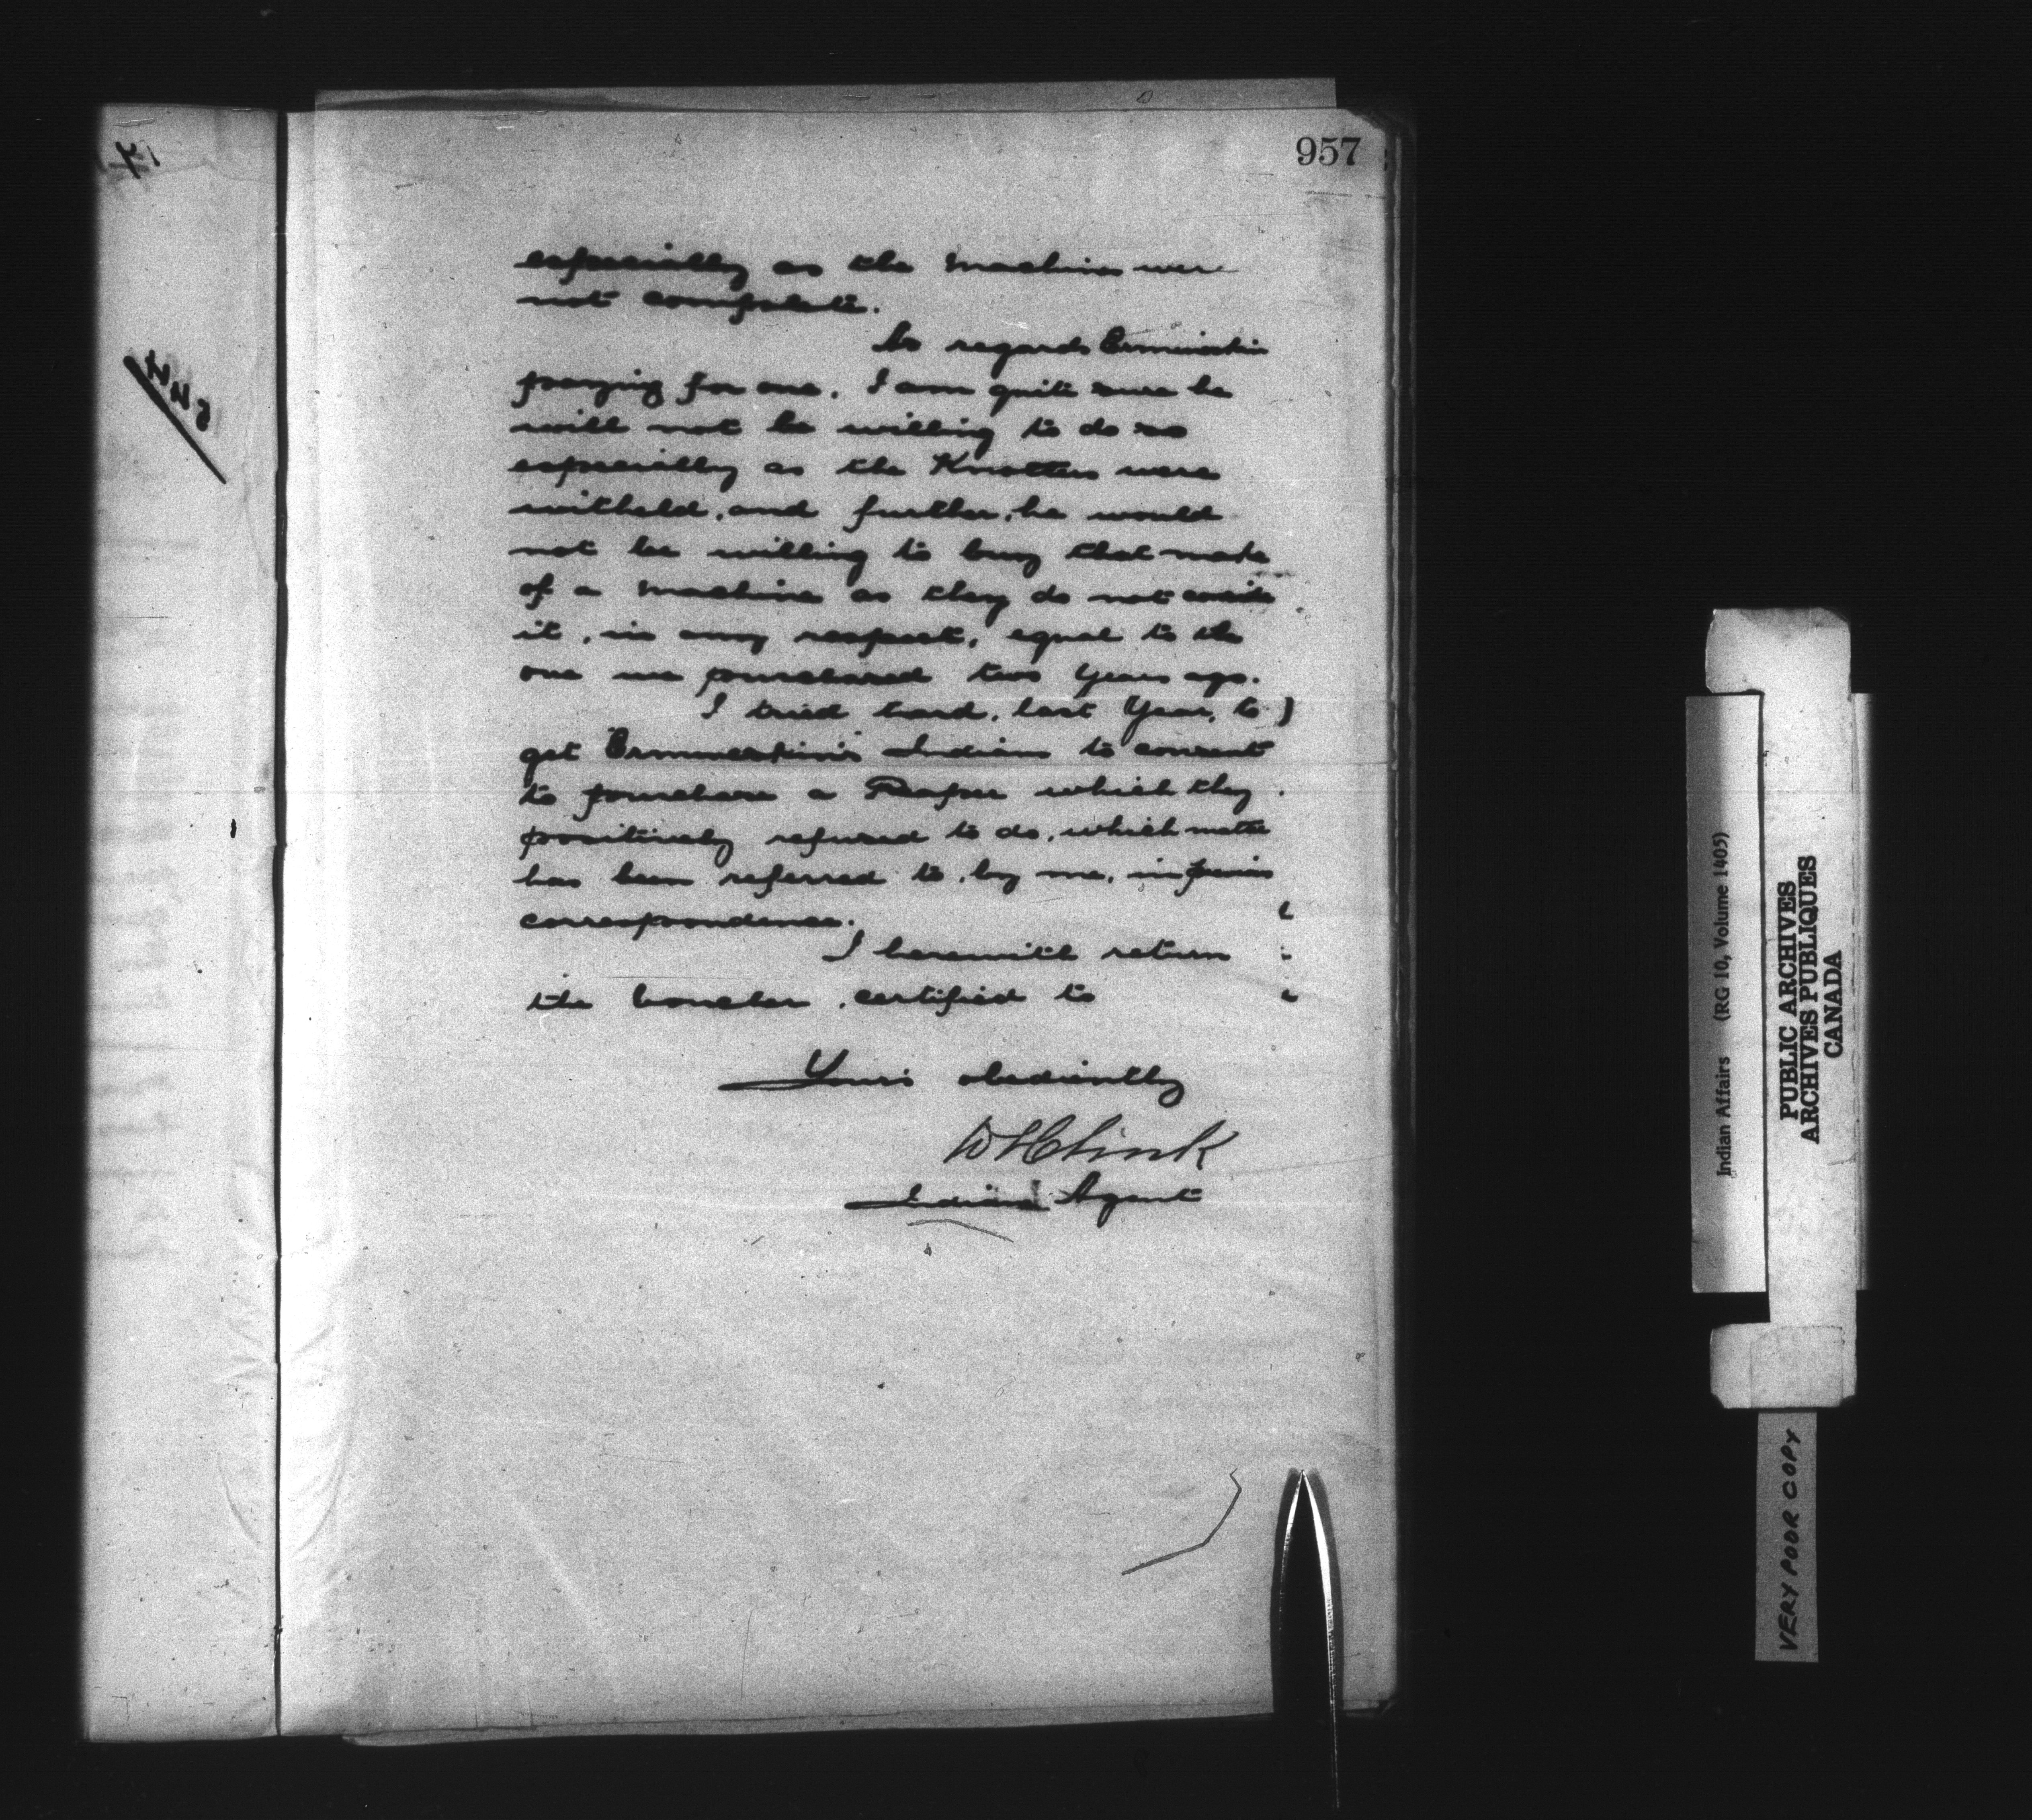 957
especially as the machines were
not complete.
As regards Ermineskin
paying for one, I am quite sure he
will not be willing to do so
especially as the Knotters were
witheld, and further, he would
not be willing to buy that make
of a machine as they do not consider
it, in any respect, equal to the
one we purchased two years ago.
I tried hard, last Year, to
get Ermineskin's Indians to consent
to purchase a Reaper which they
positively refused to do, which matter
has been referred to, by me, in previous
correspondence.
I herewith return
the Voucher, certified to
Yours obediently
Indian Agent
544
Indian Affairs (RG 10, Volume 1405)
PUBLIC ARCHIVES
ARCHIVES PUBLIQUES
CANADA
VERY POOR COPY